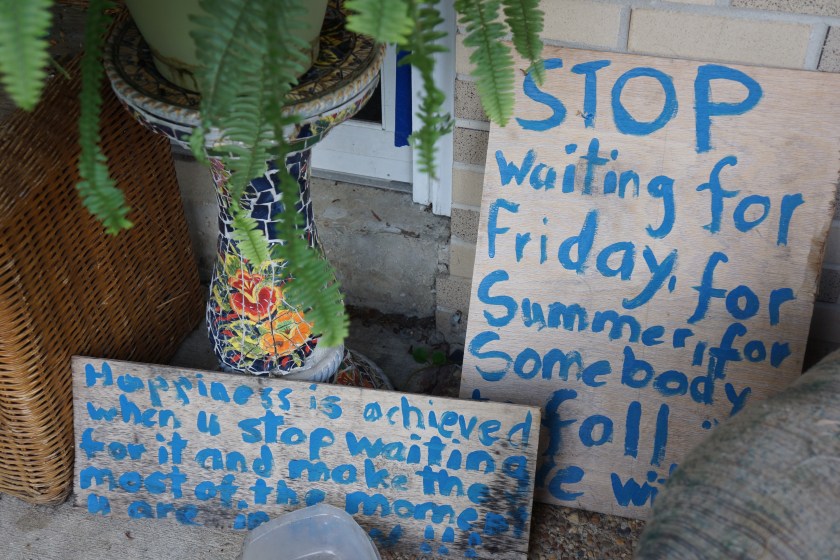 STOP
waiting for
Friday, for
Summer, for
Somebody
fall
wi
Happiness is achieved
when u stop waiting
for it and make the
most of the moment
u are in !!!